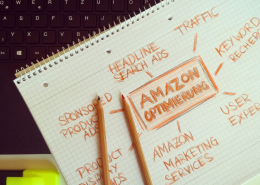 TRAFFIC
HEADLINE
SEARCH ADS
KEYWORD
RECHER
AMAZON
OPTIMIERUNG
SPONSORED
PRODUC
ADS
USER
EXPER
AMAZON
MARKETING
SERVICES
PRODUCT
ADS